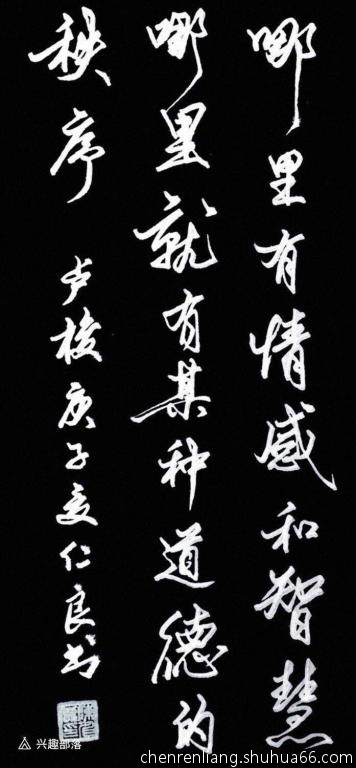 哪里有情感和智慧
哪里就有某种道德的
秩序 卢梭庚子夏仁良书
兴趣部落
chenrenliang.shuhua66.com